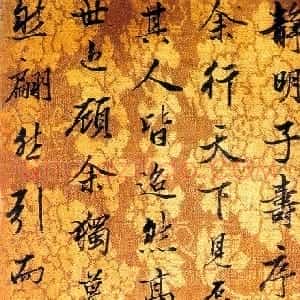 静明子壽序
余行天下見
其人皆迨然高
世之顾余獨
然翩然引而